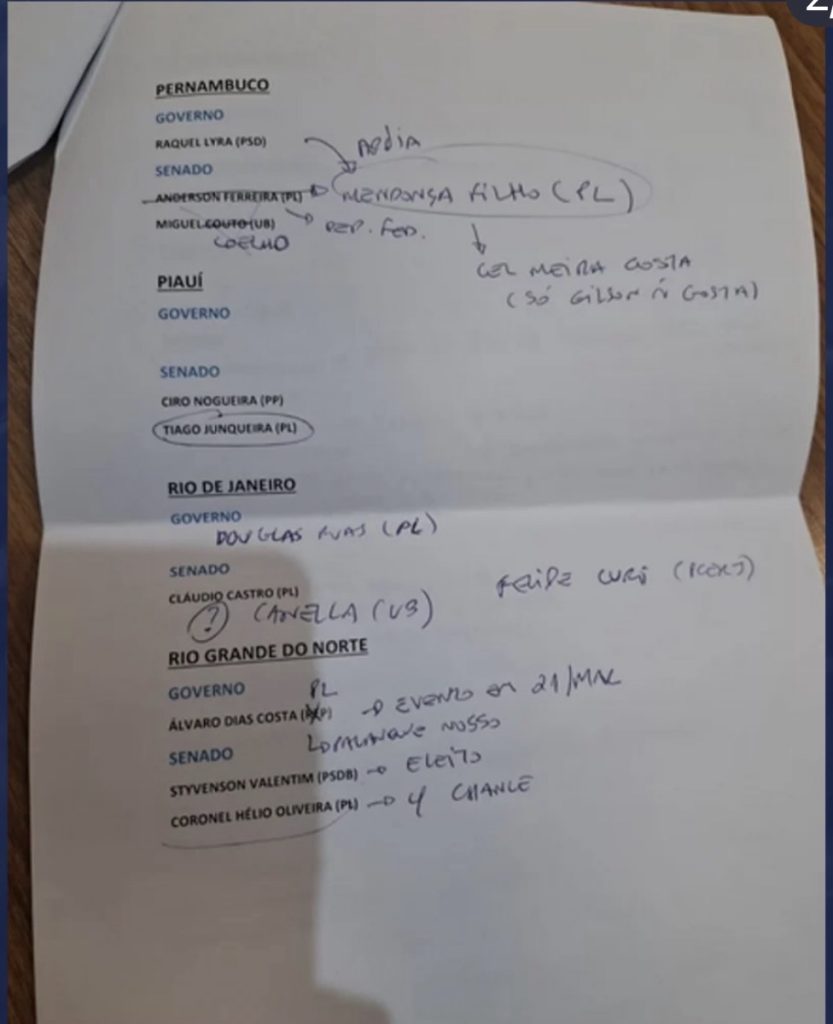 2/
PERNAMBUCO
GOVERNO
RAQUEL LYRA (PSD)
APOIA
SENADO
ANDERSON FERREIRA (PL) → MENDONÇA FILHO (PL)
MIGUEL COUTO (UB) → DEP. FED.
COELHO
CEL MEIRA GOSTA
(SÓ GILSON Ñ GOSTA)
PIAUÍ
GOVERNO
SENADO
CIRO NOGUEIRA (PP)
TIAGO JUNQUEIRA (PL)
RIO DE JANEIRO
GOVERNO
DOUGLAS RUAS (PL)
SENADO
FELIPE CURI (PCERJ)
CLÁUDIO CASTRO (PL)
(?) CANELLA (UB)
RIO GRANDE DO NORTE
GOVERNO
PL
ÁLVARO DIAS COSTA → EVENTO EM 21/MAR
PALANQUE NOSSO
SENADO
STYVENSON VALENTIM (PSDB) → ELEITO
CORONEL HÉLIO OLIVEIRA (PL) → CHANCE